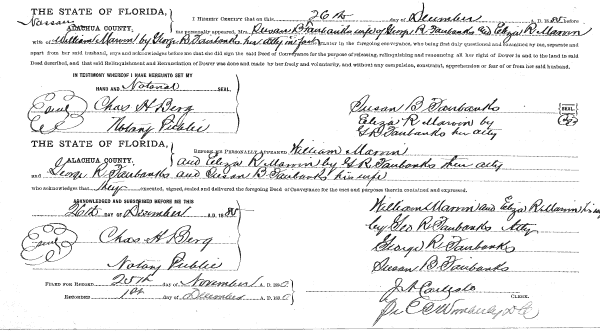 THE STATE OF FLORIDA,
Nassau
ALACHUA COUNTY,
I HEREBY CERTIFY that on this 26th day of December A. D. 188
personally appeared, Mrs. Susan B Fairbanks wife of George R. Fairbanks and Eliza R Marvin
wife of William Marvin by George R. Fairbanks her atty in fact grantor in the foregoing conveyance, who being first duly questioned and examined by me, separate and
apart from her said husband, says and acknowledges before me that she did sign the said Deed of Conveyance for the purpose of releasing, relinquishing and renouncing all her right of Dower in and to the land in said
Deed described, and that said Relinquishment and Renunciation of Dower was done and made by her freely and voluntarily, and without any compulsion, constraint, apprehension or fear of or from her said husband.
IN TESTIMONY WHEREOF I HAVE HEREUNTO SET MY
HAND AND Notarial SEAL.
Seal
Chas H Berg
Notary Public
Susan B Fairbanks
SEAL
Eliza R Marvin by
G R Fairbanks her atty
THE STATE OF FLORIDA,
ALACHUA COUNTY,
BEFORE ME PERSONALLY APPEARED William Marvin
and Eliza R Marvin by G R Fairbanks her atty
George R. Fairbanks and Susan B Fairbanks his wife
who acknowledge that they executed, signed, sealed and delivered the foregoing Deed of Conveyance for the uses and purposes therein contained and expressed.
ACKNOWLEDGED AND SUBSCRIBED BEFORE ME THIS
26th DAY OF December A. D. 188
Seal
Chas H Berg
Notary Public
William Marvin and Eliza R Marvin his
by Geo R Fairbanks Atty
George R Fairbanks
Susan B Fairbanks
FILED FOR RECORD 25th DAY OF November A. D. 18
RECORDED 1st day of December A. D. 18
J A Carlisle
CLERK.